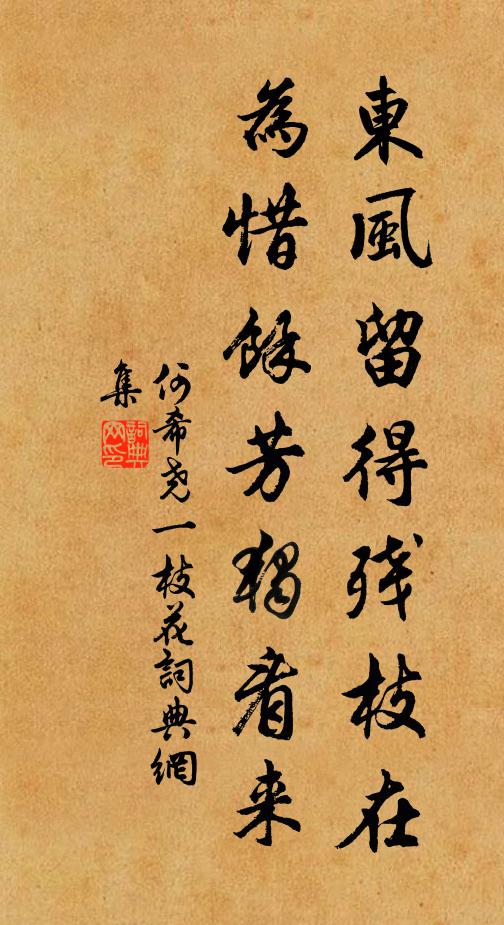 東風留得殘枝在
為惜餘芳獨看来
何希堯一枝花詞典網
集
詞典
网印